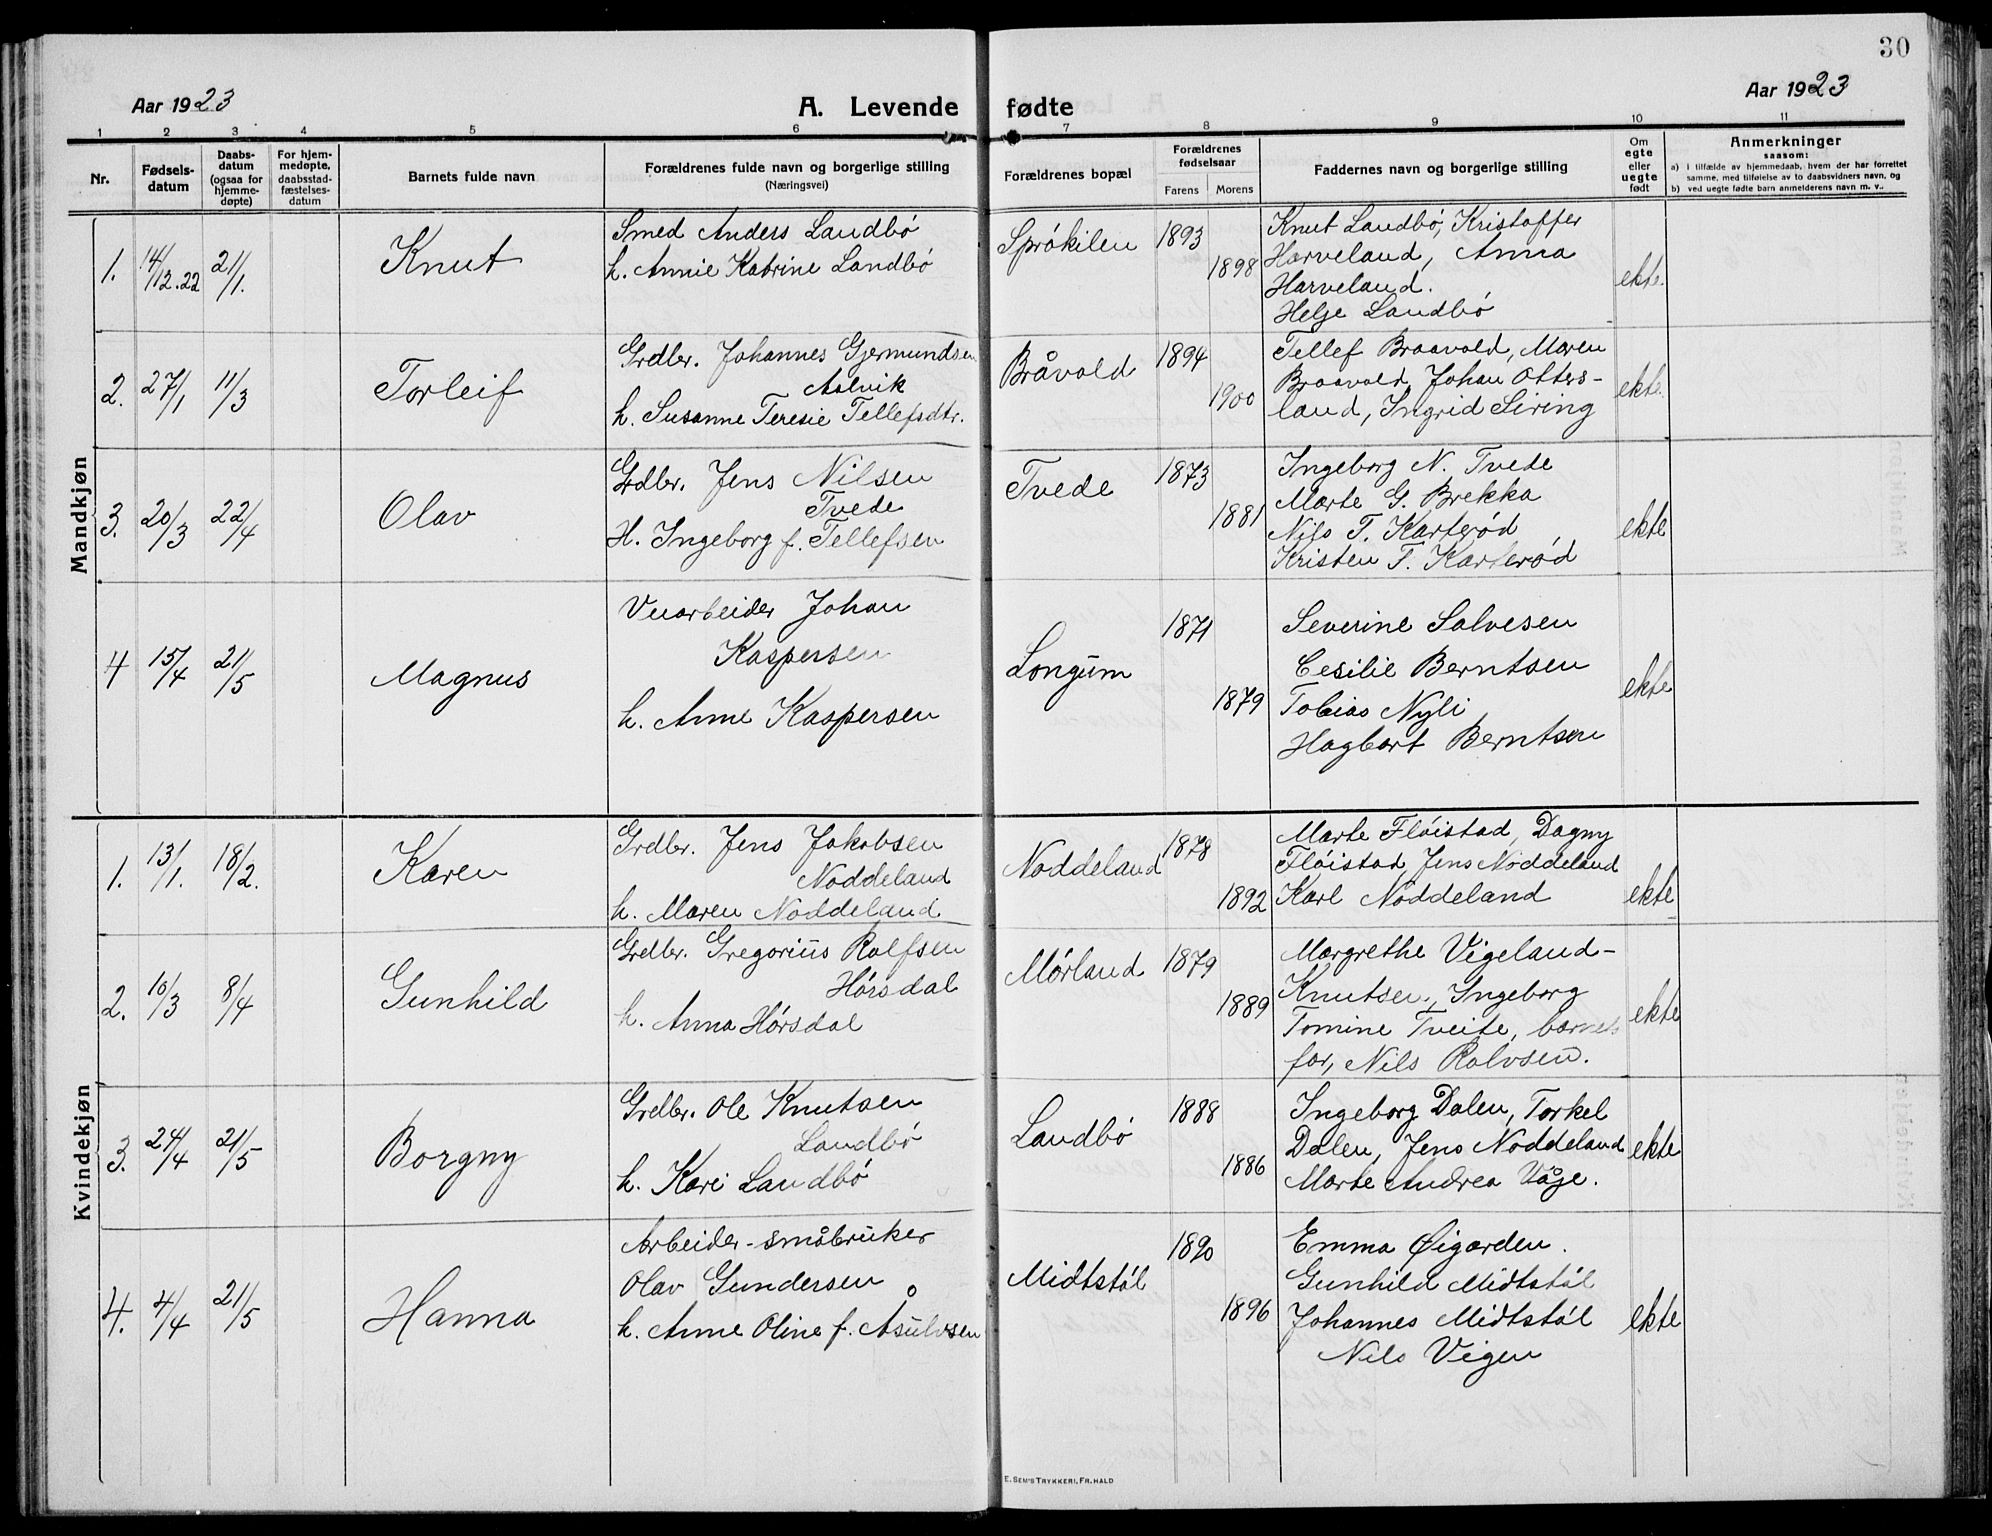 30
Aar 1923
A. Levende fødte
Aar 1923
1 2 3 4 5 6 7 8 9 10 11
Nr.
Fødsels-
datum
Daabs-
datum
(ogsaa for
hjemme-
døpte)
For hjem-
medøpte,
daabsstad-
fæstelses-
datum
Barnets fulde navn
Forældrenes fulde navn og borgerlige stilling
(Næringsvei)
Forældrenes bopæl
Forældrenes
fødselsaar
Farens Morens
Faddernes navn og borgerlige stilling
Om
egte
eller
uegte
født
Anmerkninger
saasom:
a) i tilfælde av hjemmedaab, hvem der har forrettet
samme, med tilføielse av to daabsvidners navn, og
b) ved uegte fødte barn anmelderens navn m. v..
Mandkjøn
1. 14/12.22 21/1. Knut
Smed Anders Landbø
h. Annie Katrine Landbø
Språkilen 1893
1898
Knut Landbø, Kristoffer
Harveland, Anna
Harveland.
Helje Landbø
ekte.
2. 27/1 11/3 Torleif
Grdbr. Johannes Gjermundsen
Aalvik
h. Susanne Teresie Tellefsdtr.
Bråvold 1894
1900
Tellef Braavold, Maren
Braavold, Johan Otters-
land, Ingrid Siring
ekte.
3. 20/3 22/4 Olav
Grdbr. Jens Nilsen
Tvede
H. Ingeborg f. Tellefsen
Tvede 1873
1881
Ingeborg N. Tvede
Marte G. Brekka
Nils T. Karterød
Kristen T. Karterød
ekte
4 15/4 21/5 Magnus
Veiarbeider Johan
Kaspersen
h. Anne Kaspersen
Longum 1871
1879
Severine Salvesen
Cesilie Berntsen
Tobias Nyli
Hagbart Berntsen
ekte
Kvindekjøn
1. 13/1. 18/2. Karen
Grdbr. Jens Jakobsen
Noddeland
h. Maren Noddeland
Noddeland 1878
1892
Marte Fløistad, Dagny
Fløistad, Jens Noddeland
Karl Noddeland
ekte
2. 10/3 8/4 Gunhild
Grdbr. Gregorius Rolfsen
Hørsdal
h. Anna Hørsdal
Mørland 1879
1889
Margrethe Vigeland-
Knutsen, Ingeborg
Tomine Tveite, barnets
far, Nils Rolvsen.
ekte
3. 24/4 21/5 Borgny
Grdbr. Ole Knutsen
Landbø
h. Kari Landbø
Landbø 1888
1886
Ingeborg Dalen, Torkel
Dalen, Jens Noddeland
Marte Andrea Våje.
ekte
4. 4/4 21/5 Hanna
Arbeider-småbruker
Olav Gundersen
h. Anne Oline f. Åsulvsen
Midtstøl 1890
1896
Emma Øigarden.
Gunhild Midtstøl
Johannes Midtstøl
Nils Vigen
ekte
E. SEM'S TRYKKERI, FR.HALD